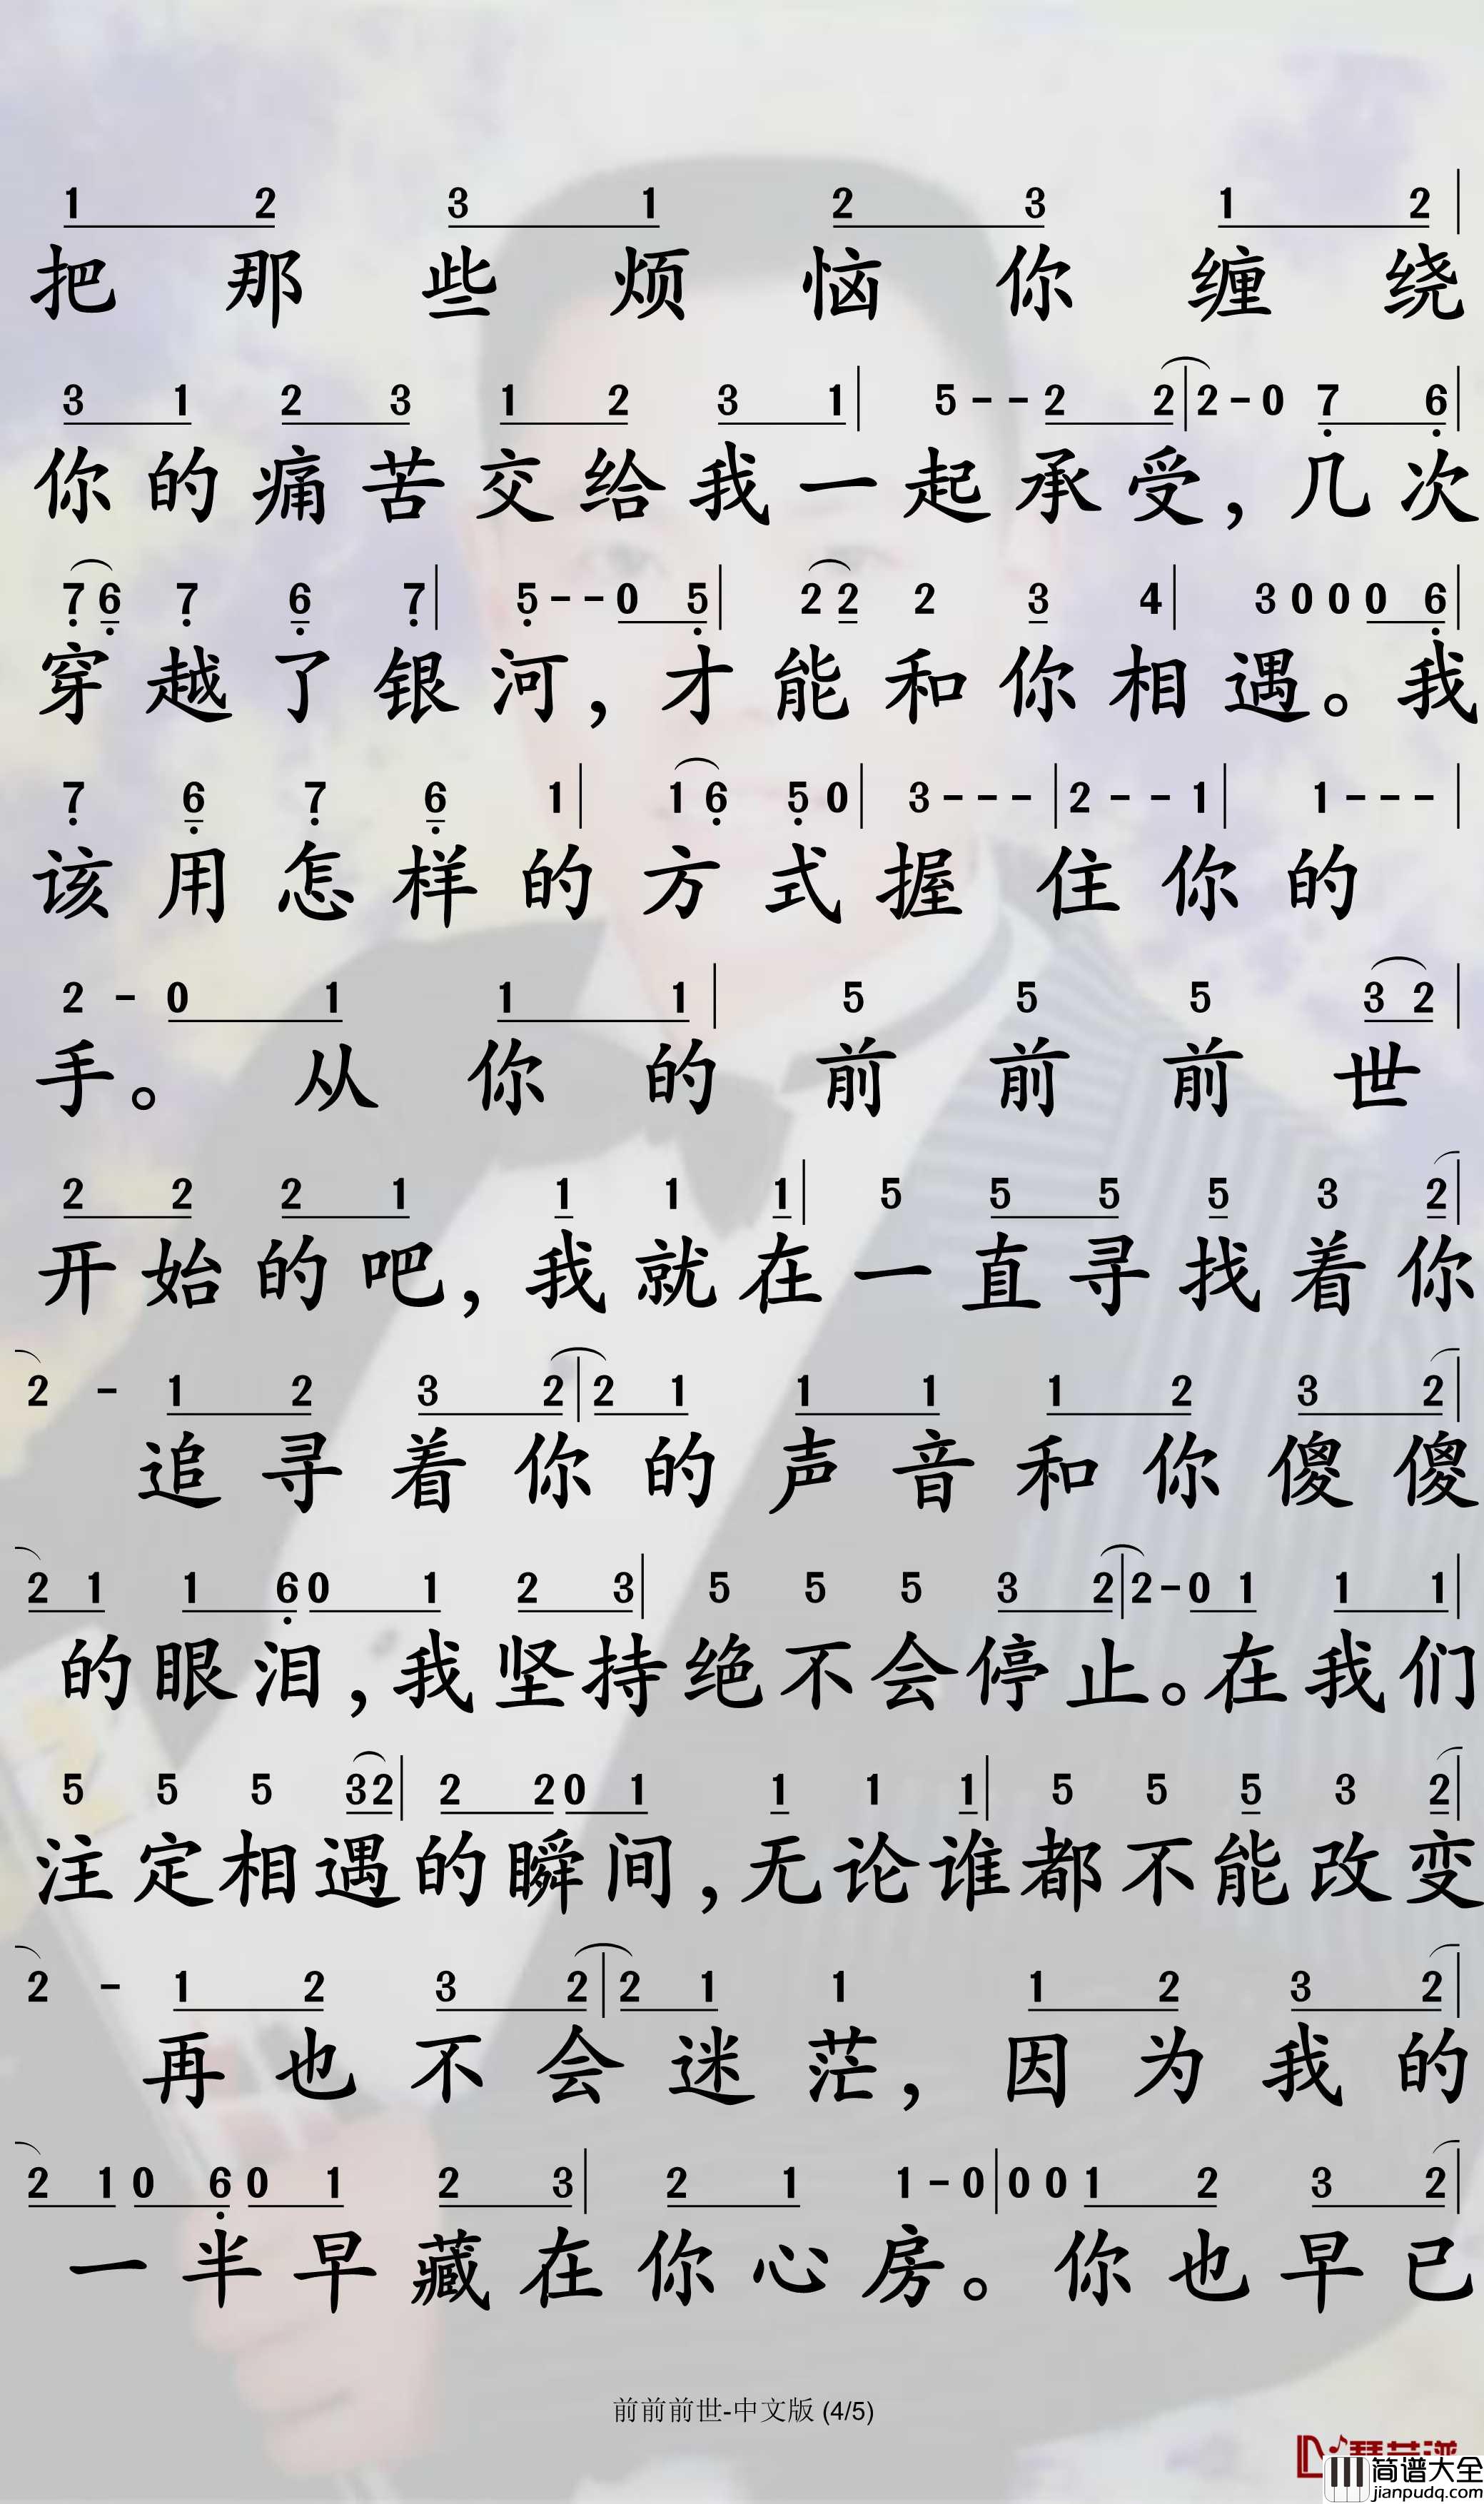 1 2 3 1 2 3 1 2|
把那些烦恼你缠绕
3 1 2 3 1 2 3 1| 5 - - 2 2|2 - 0 7 6|
你的痛苦交给我一起承受，几次
7 6 7 6 7| 5 - - 0 5| 2 2 2 3 4| 3 0 0 0 6|
穿越了银河，才能和你相遇。我
7 6 7 6 1| 1 6 5 0| 3 - - -|2 - - 1| 1 - - -|
该用怎样的方式握住你的
2 - 0 1 1 1| 5 5 5 3 2|
手。从你的前前前世
2 2 2 1 1 1 1| 5 5 5 5 3 2|
开始的吧，我就在一直寻找着你
2 - 1 2 3 2|2 1 1 1 1 2 3 2|
追寻着你的声音和你傻傻
2 1 1 6 0 1 2 3| 5 5 5 3 2|2 - 0 1 1 1|
的眼泪，我坚持绝不会停止。在我们
5 5 5 3 2| 2 2 0 1 1 1 1| 5 5 5 3 2|
注定相遇的瞬间，无论谁都不能改变
2 - 1 2 3 2|2 1 1 1 2 3 2|
再也不会迷茫，因为我的
2 1 0 6 0 1 2 3| 2 1 1 - 0|0 0 1 2 3 2|
一半早藏在你心房。你也早已
前前前世-中文版 (4/5)
简谱大全
jianpudq.com